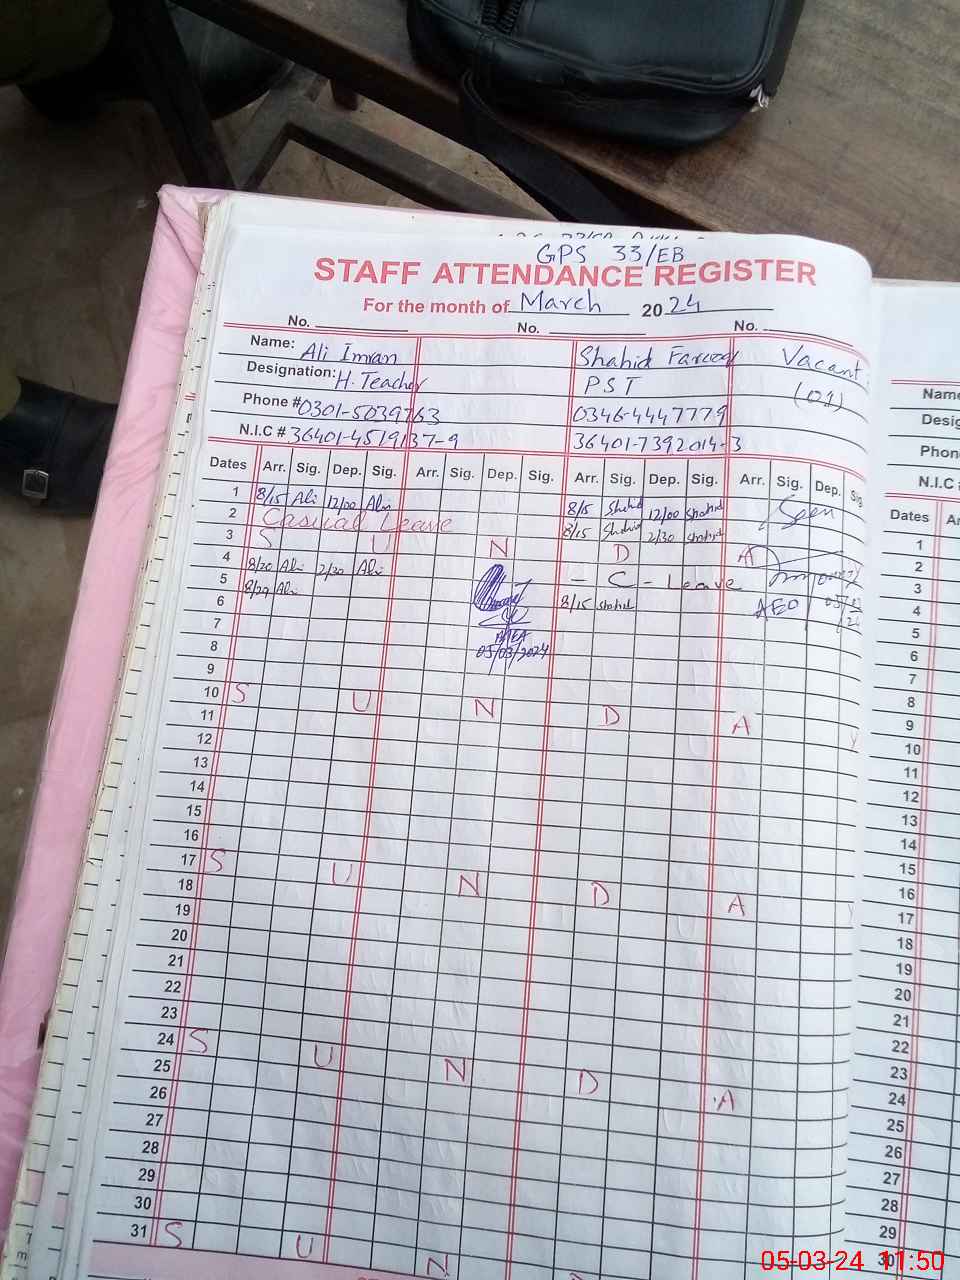 GPS 33/EB
STAFF ATTENDANCE REGISTER
For the month of March 2024
No. No. No.
Name: Ali Imran Shahid Farooq Vacant
Designation: H. Teacher PST (01)
Phone # 0301-5039763 0346-4447779
N.I.C # 36401-4519137-9 36401-7392014-3
Dates Arr. Sig. Dep. Sig. Arr. Sig. Dep. Sig. Arr. Sig. Dep. Sig. Arr. Sig. Dep. Sig
1 8/15 Ali 12/00 Ali 8/15 Shahid 12/00 Shahid Seen
2 Casual Leave 8/15 Shahid 2/30 Shahid
3 S U N D A Y
4 8/20 Ali 2/30 Ali - C - Leave
5 8/20 Ali 8/15 Shahid AEO
6
7
05/03/2024
8
9
10 S U N D A Y
11
12
13
14
15
16
17 S U N D A Y
18
19
20
21
22
23
24 S U N D A
25
26
27
28
29
30
31 S U N D
Name
Desig
Phon
N.I.C
Dates A
1
2
3
4
5
6
7
8
9
10
11
12
13
14
15
16
17
18
19
20
21
22
23
24
25
26
27
28
29
30
05-03-24 11:50